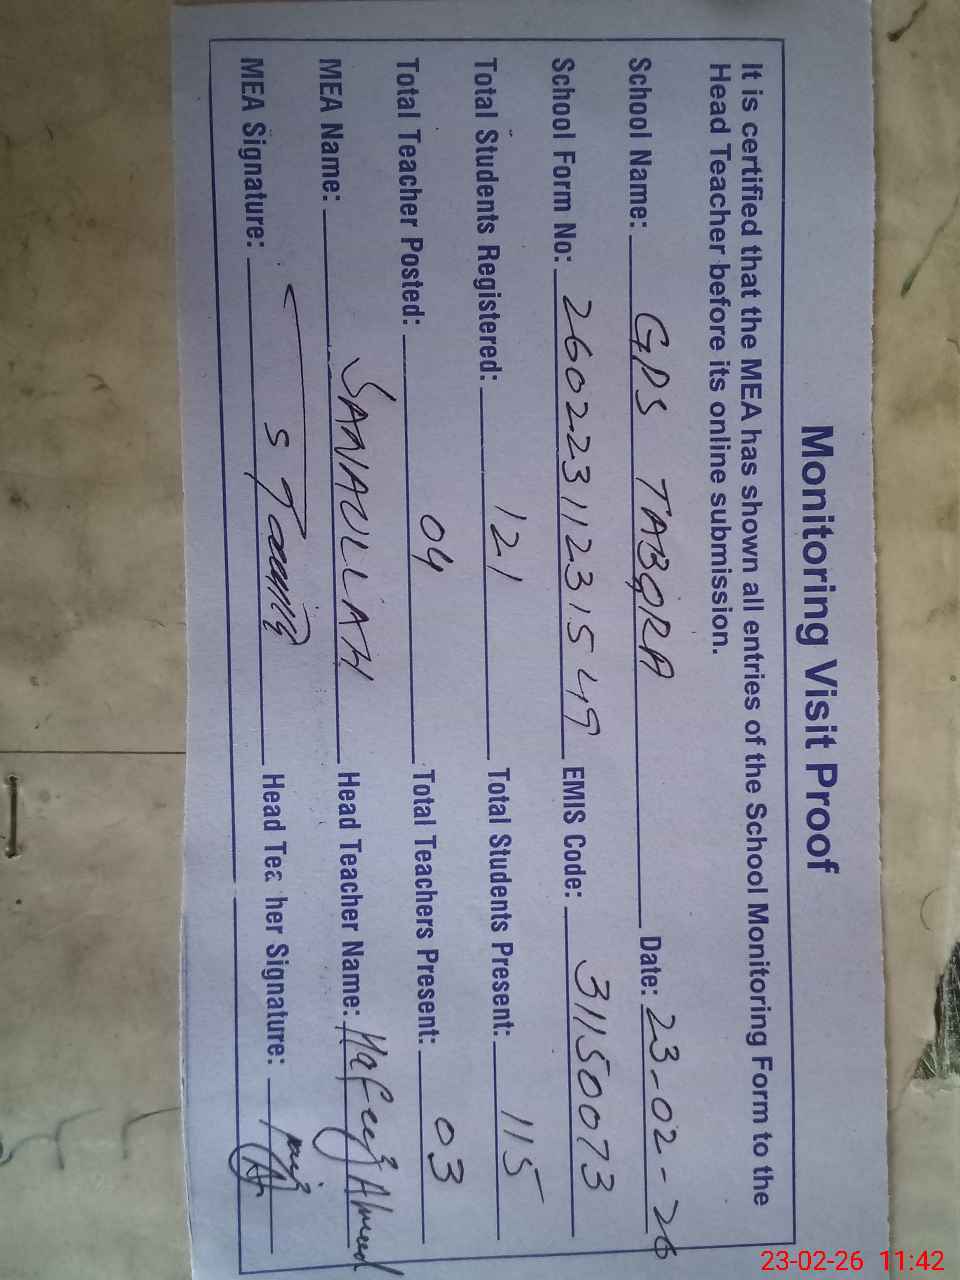 Monitoring Visit Proof
It is certified that the MEA has shown all entries of the School Monitoring Form to the
Head Teacher before its online submission.
School Name: GPS TABQRA Date: 23-02-26
School Form No: 2602231123 1549 EMIS Code: 31150073
Total Students Registered: 121 Total Students Present: 115
Total Teacher Posted: 04 Total Teachers Present: 03
MEA Name: SANAULLAH Head Teacher Name: Hafeez Ahmed
MEA Signature: Head Teacher Signature:
23-02-26 11:42